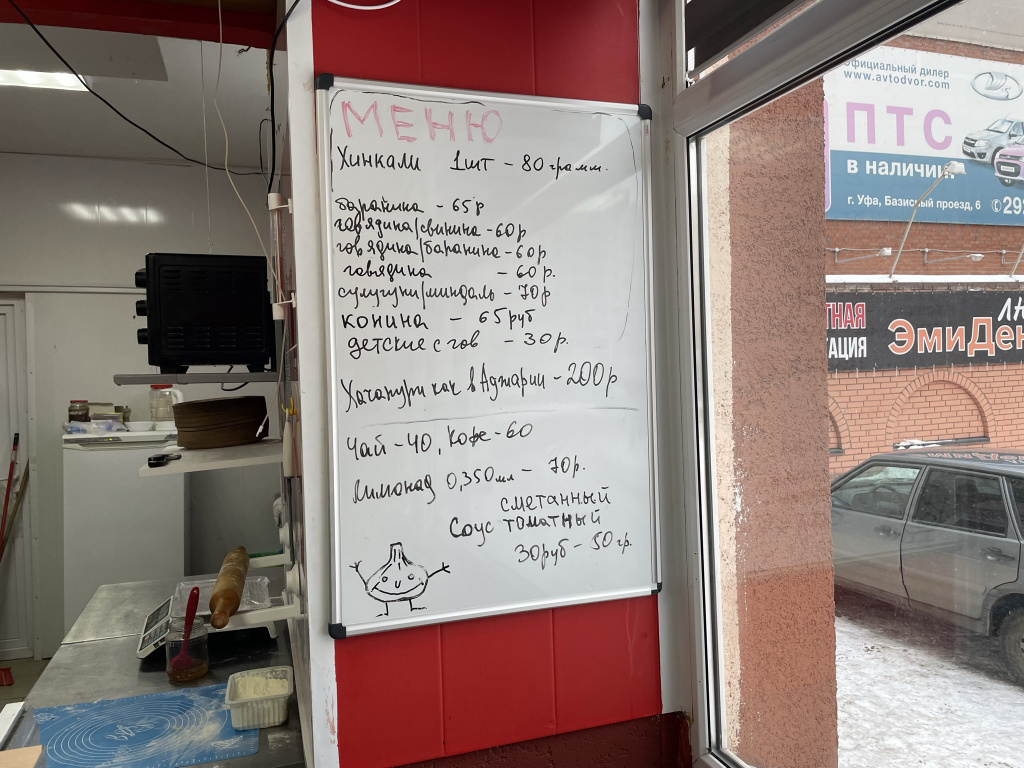 МЕНЮ
Хинкали 1шт - 80 грамм.
баранина - 65р
говядина/свинина - 60р
говядина/баранина - 60р
говядина - 60р.
сулугуни/миндаль - 70р
конина - 65руб
детские с гов - 30р.
Хачапури как в Аджарии - 200р
Чай - 40, Кофе - 60
Лимонад 0,350мл - 70р.
сметанный
Соус томатный
30руб - 50гр.
официальный дилер
www.avtodvor.com
ПТС
в наличии.
г. Уфа, Базисный проезд, 6